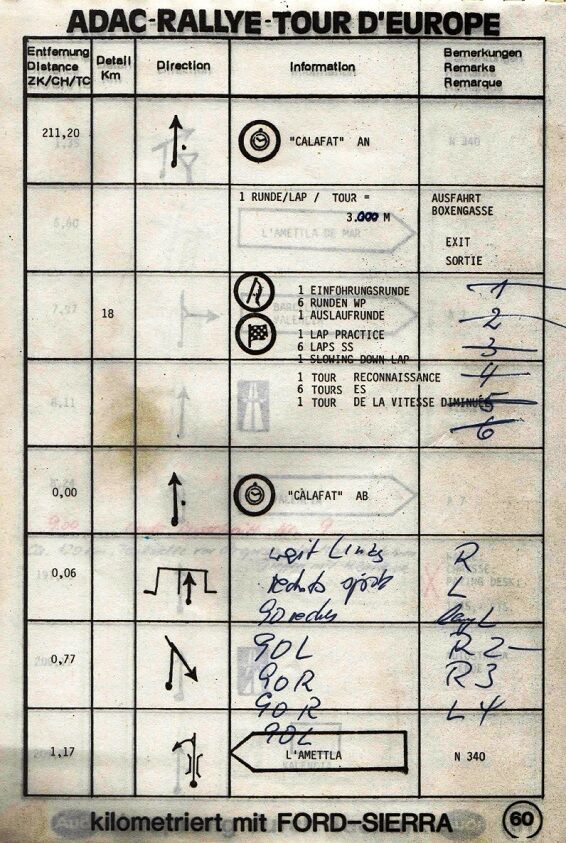 ADAC-RALLYE-TOUR D'EUROPE
Entfernung Distance ZK/CH/TC
Detail Km
Direction
Information
Bemerkungen Remarks Remarque
211,20 "CALAFAT" AN
1 RUNDE/LAP / TOUR =
3.000 M
AUSFAHRT
BOXENGASSE
EXIT
SORTIE
18
1 EINFÜHRUNGSRUNDE
6 RUNDEN WP
1 AUSLAUFRUNDE
1 LAP PRACTICE
6 LAPS SS
1 SLOWING DOWN LAP
1 TOUR RECONNAISSANCE
6 TOURS ES
1 TOUR DE LA VITESSE DIMINUÉE
1
2
3
4
5
6
0,00 "CALAFAT" AB
0,06
weit Links R
rechts L
90 rechts L
0,77
90L R2
90R R3
90R L4
90L
1,17 L'AMETTLA N 340
kilometriert mit FORD-SIERRA 60